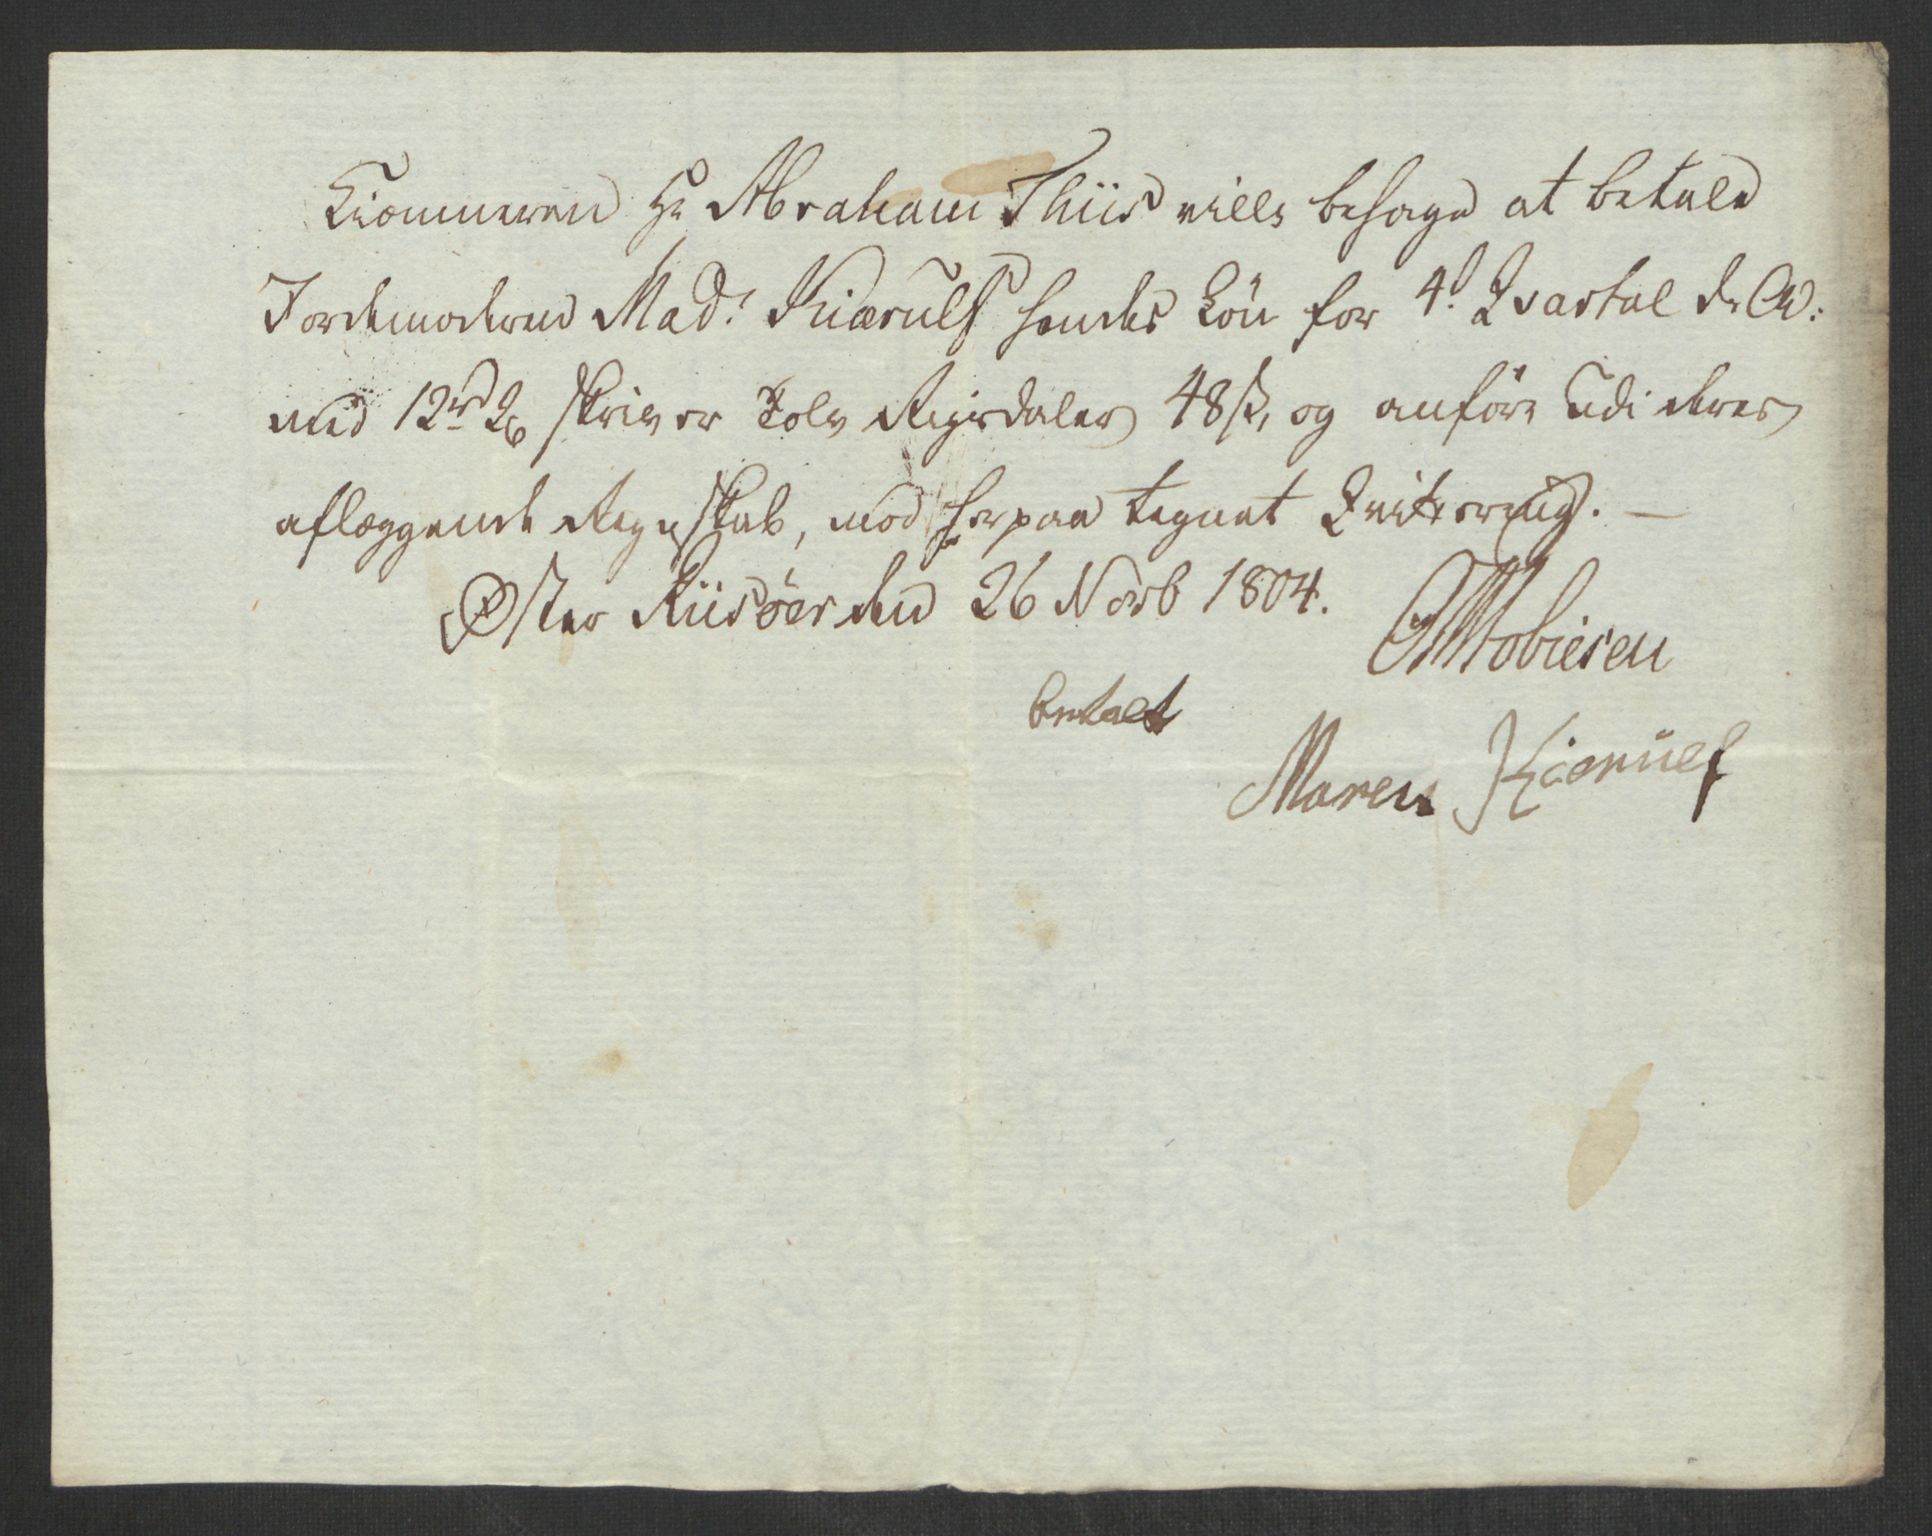 Kiæmneren Hr Abraham Thiis ville behage at betale
Jordemoderen Mad: Kiærulf hendes Lön for 4de Qvartal d: A:
med 12 rd 48 skriver Tolv Rigsdaler 48 s, og anföre udi deres
aflæggende Regnskab, mod herpaa tegnet Qvitering. —
Øster Riisöer den 26 Novb 1804.
Tobiesen
betalt
Maren Kierulf